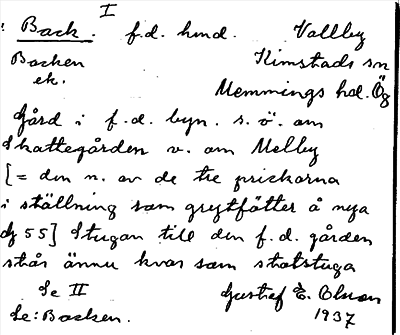 I
: Back. f.d. hmd. Vallby
Backen Kimstads sn
ek. Memmings hd. Ög
Gård i f.d. byn. s.ö. om
Skattegården v. om Melby
[= den n. av de tre prickarna
i ställning som grytfötter å nya
dg 55] Stugan till den f.d. gården
står ännu kvar som statstuga
Se II Gustaf E. Olsson
Se: Backen. 1937